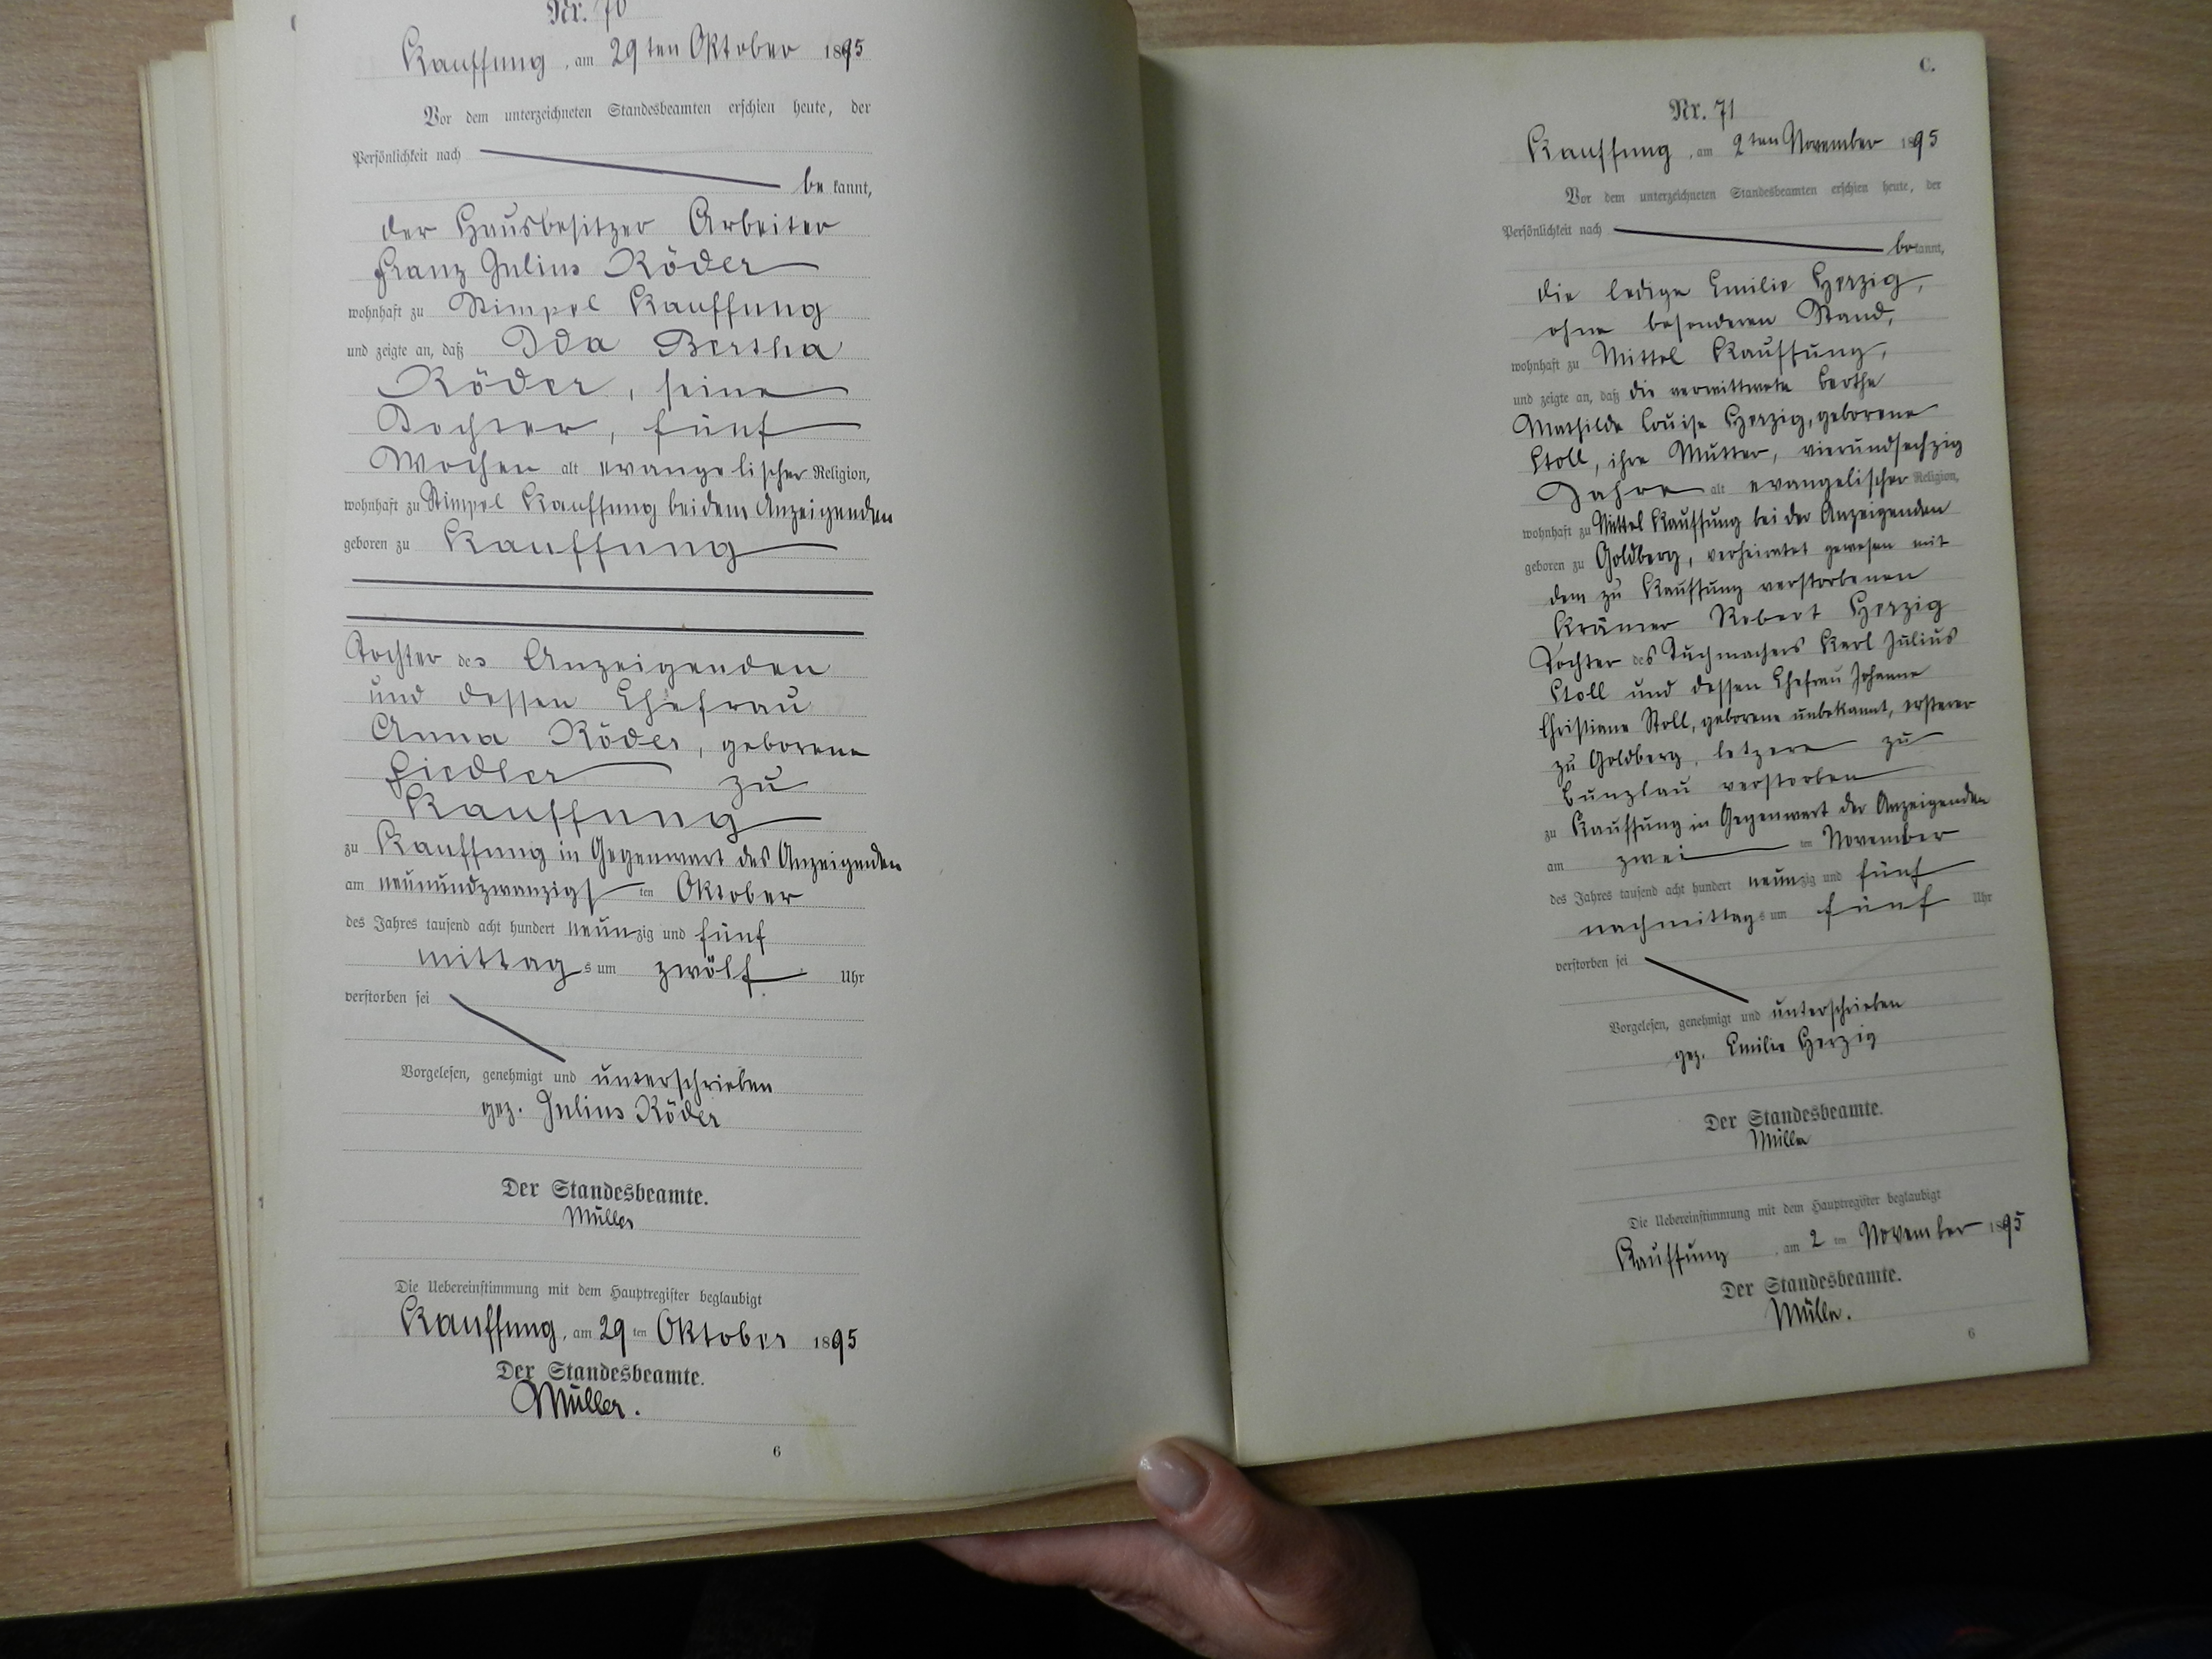 Nr. 70
Kauffung, am 29ten Oktober 1895
Vor dem unterzeichneten Standesbeamten erschien heute, der
Persönlichkeit nach
be kannt,
der Hausbesitzer Arbeiter
Franz Julius Röder
wohnhaft zu Stimpel Kauffung
und zeigte an, daß Ida Bertha
Röder, seine
Tochter, fünf
Wochen alt evangelischer Religion,
wohnhaft zu Stimpel Kauffung bei dem Anzeigenden
geboren zu Kauffung
Tochter des Anzeigenden
und dessen Ehefrau
Anna Röder, geborene
Fiedler zu
Kauffung
zu Kauffung in Gegenwart des Anzeigenden
am neunundzwanzigsten Oktober
des Jahres tausend acht hundert neunzig und fünf
mittags um zwölf Uhr
verstorben sei
Vorgelesen, genehmigt und unterschrieben
gez. Julius Röder
Der Standesbeamte.
Müller
Die Uebereinstimmung mit dem Hauptregister beglaubigt
Kauffung, am 29ten Oktober 1895
Der Standesbeamte.
Müller.
6
C.
Nr. 71
Kauffung, am 2ten November 1895
Vor dem unterzeichneten Standesbeamten erschien heute, der
Persönlichkeit nach
bekannt,
die ledige Emilie Herzig,
ohne besonderen Stand,
wohnhaft zu Mittel Kauffung,
und zeigte an, daß die verwittwete Berthe
Mathilde Louise Herzig, geborene
Stoll, ihre Mutter, vierundsechzig
Jahre alt evangelischer Religion,
wohnhaft zu Mittel Kauffung bei der Anzeigenden
geboren zu Goldberg, verheiratet gewesen mit
dem zu Kauffung verstorbenen
Krämer Robert Herzig
Tochter des Tuchmachers Karl Julius
Stoll und dessen Ehefrau Johanne
Christiane Stoll, geborene unbekannt, ersterer
zu Goldberg, letzere zu
Bunzlau verstorben
zu Kauffung in Gegenwart der Anzeigenden
am zwei ten November
des Jahres tausend acht hundert neunzig und fünf
nachmittags um fünf Uhr
verstorben sei
Vorgelesen, genehmigt und unterschrieben
gez. Emilie Herzig
Der Standesbeamte.
Müller
Die Uebereinstimmung mit dem Hauptregister beglaubigt
Kauffung, am 2ten November 1895
Der Standesbeamte.
Müller.
6